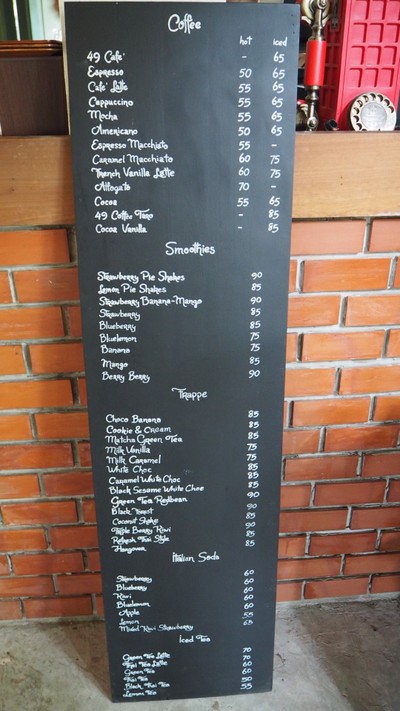 Coffee
hot iced
49 Cafe' - 65
Espresso 50 65
Cafe' Latte 55 65
Cappuccino 55 65
Mocha 55 65
Americano 50 65
Espresso Macchiato 55 -
Caramel Macchiato 60 75
French Vanilla Latte 60 75
Affogato 70 -
Cocoa 55 65
49 Coffee - 85
Cocoa Vanilla - 85
Smoothies
Strawberry Pie Shakes 90
Lemon Pie Shakes 85
Strawberry Banana-Mango 90
Strawberry 85
Blueberry 85
Bluelemon 75
Banana 75
Mango 85
Berry Berry 90
Frappe
Choco Banana 85
Cookie & Cream 85
Matcha Green Tea 85
Milk Vanilla 75
Milk Caramel 75
White Choc 85
Caramel White Choc 85
Black Sesame White Choc 85
Green Tea Redbean 90
Black 90
Coconut Shake 85
Berry Kiwi 90
Refresh Thai Style 85
Hangover 85
Italian Soda
Strawberry 60
Blueberry 60
Kiwi 60
Bluelemon 60
Apple 60
Lemon 55
Mixed Kiwi Strawberry 65
Iced Tea
Green Tea Latte 70
Thai Tea Latte 70
Green Tea 60
Thai Tea 60
Black Thai Tea 50
Lemon Tea 55